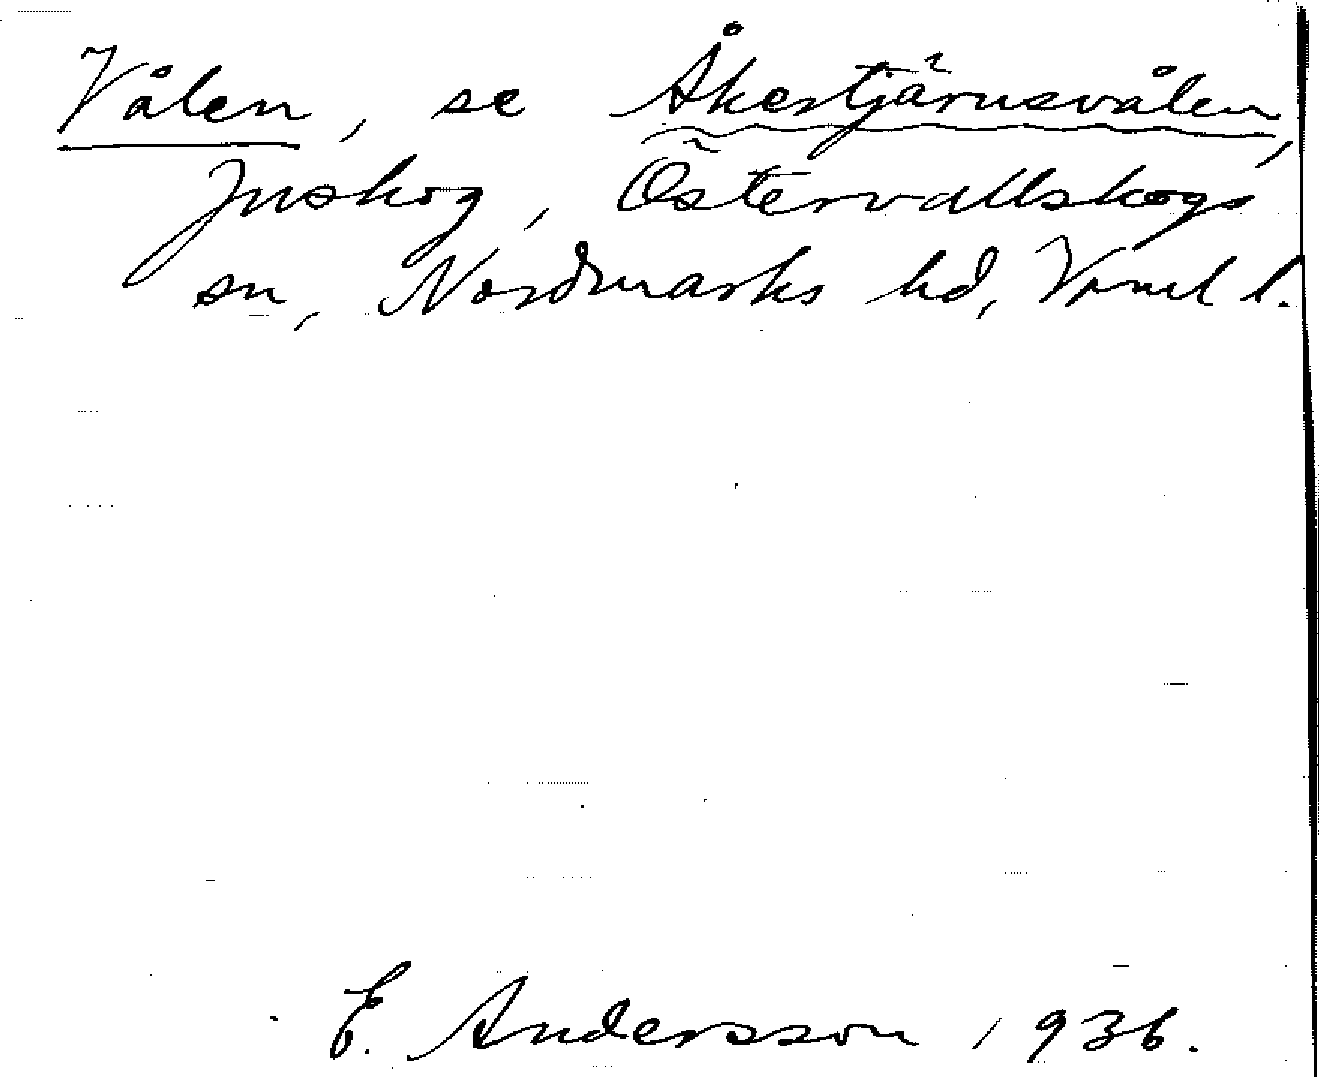 Vålen, se Åkerstjärnsvålen,
Juskog, Östervallskogs
sn, Nordmarks hd, Vrml l.
E. Andersson 1936.